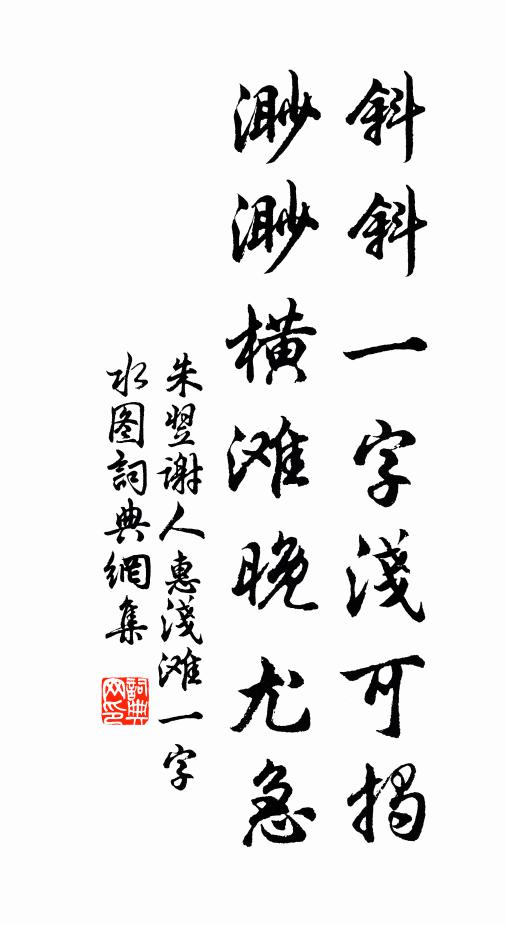 斜斜一字淺可揭
渺渺橫滩晚尤急
朱翌谢人惠淺滩一字
水图詞典網集
詞典網印